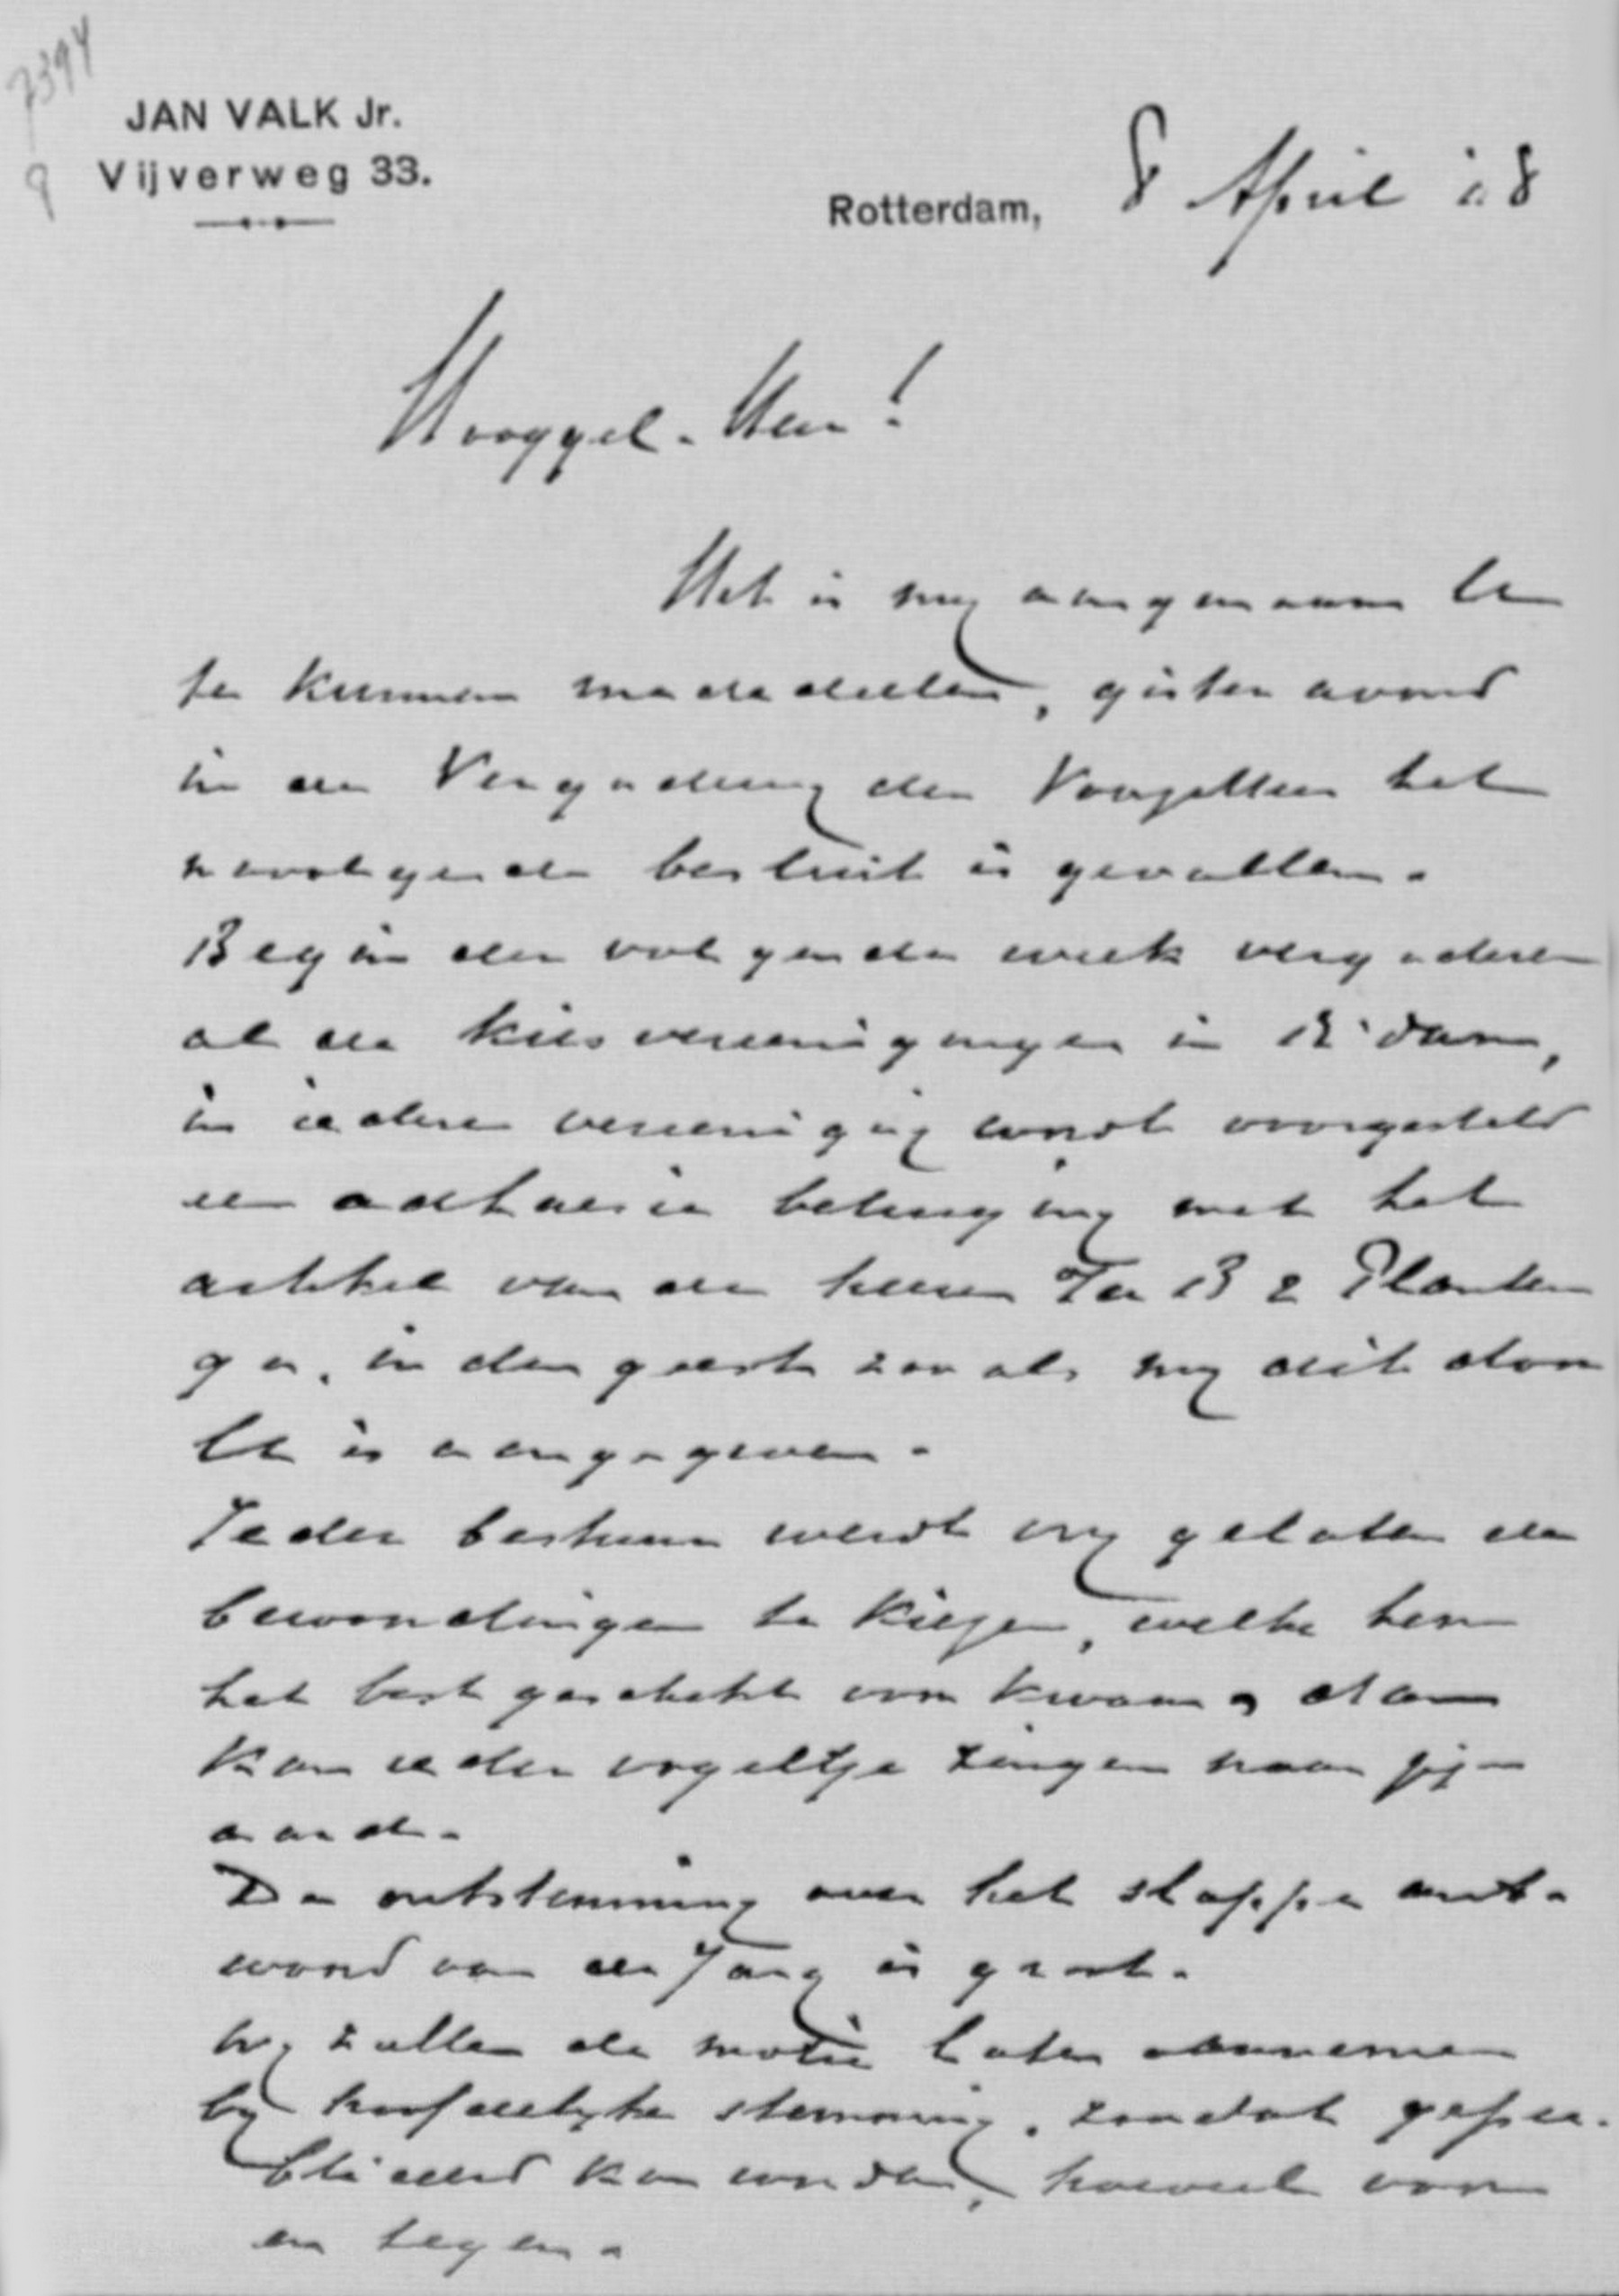 7394
9
JAN VALK Jr.
Vijverweg 33.
Rotterdam, 8 April 18
Hooggel. Heer!
Het is mij aangenaam U
te kunnen mededeelen, gister avond
in de Vergadering der Voorzitters het
navolgende besluit is gevallen.
Begin der volgende week vergaderen
al de kiesvereenigingen in R'dam,
in iedere vereeniging wordt voorgesteld
een adhaesie betuiging met het
artikel van de heeren Ter B & Planten
ga, in den geest zooals mij dit door
U is aangegeven.
Ieder bestuur werdt vrij gelaten de
bewoordingen te kiezen, welke hen
het best geschikt voor kwam, dan
kan ieder vogeltje zingen naar zijn
aard.
De ontstemming over het slappe ant-
woord van de Jong is groot.
Wij zullen de motie laten aannemen
bij hoofdelijke stemming, zoodat gepu-
bliceerd kan worden, hoeveel voor
en tegen.